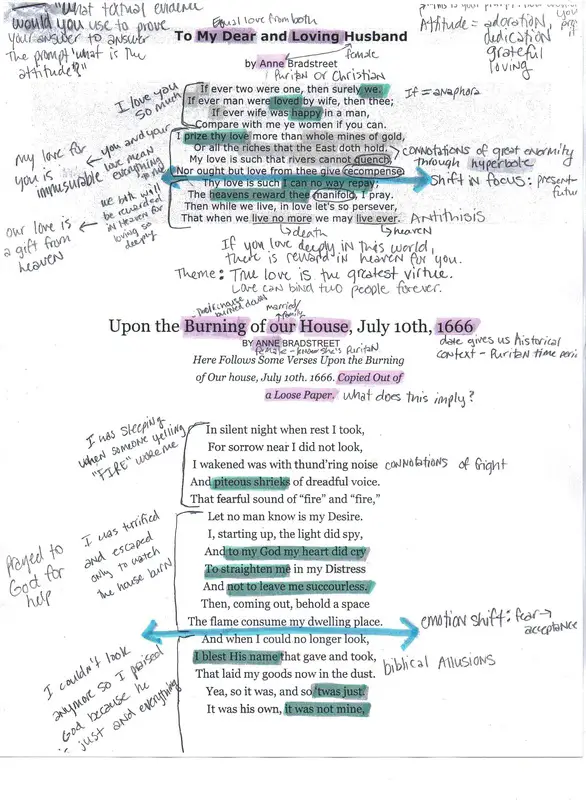 "What textual evidence
would you use to prove
your answer to answer
The prompt 'what is the
attitude'?"
Equal love from both
you
Attitude = adoration,
dedication
grateful
loving
To My Dear and Loving Husband
by Anne Bradstreet
female
Puritan or Christian
If ever two were one, then surely we.
If ever man were loved by wife, then thee;
If ever wife was happy in a man,
Compare with me ye women if you can.
I prize thy love more than whole mines of gold,
Or all the riches that the East doth hold.
My love is such that rivers cannot quench,
Nor ought but love from thee give recompense.
Thy love is such I can no way repay;
The heavens reward thee manifold, I pray.
Then while we live, in love let's so persever,
That when we live no more we may live ever.
I love you
so much
If = anaphora
my love for
you is
immusurable
you and your
love mean
everything
connotations of great enormity
through hyperbole
shift in focus: present
futur
we both will
be rewarded
in Heaven for
loving so
deeply
our love is
a gift from
heaven
Antithisis
death
heaven
If you love deeply in this world,
there is reward in heaven for you.
Theme: True love is the greatest virtue.
Love can bind two people forever.
burned down
married/
family
Upon the Burning of our House, July 10th, 1666
BY ANNE BRADSTREET
female - know she's Puritan
date gives us historical
context - Puritan time peri
Here Follows Some Verses Upon the Burning
of Our house, July 10th. 1666. Copied Out of
a Loose Paper.
What does this imply?
In silent night when rest I took,
For sorrow near I did not look,
I wakened was with thund'ring noise
And piteous shrieks of dreadful voice.
That fearful sound of "fire" and "fire,"
Let no man know is my Desire.
I, starting up, the light did spy,
And to my God my heart did cry
To straighten me in my Distress
And not to leave me succourless.
Then, coming out, behold a space
The flame consume my dwelling place.
And when I could no longer look,
I blest His name that gave and took,
That laid my goods now in the dust.
Yea, so it was, and so 'twas just.
It was his own, it was not mine,
I was sleeping
when someone yelling
"FIRE" woke me
connotations of fright
I was turrified
and escaped
only to watch
the house burn
Prayed to
God for
help
emotion shift: fear→
acceptance
I couldn't look
anymore so I praised
God because he
is just and everything
biblical Allusions